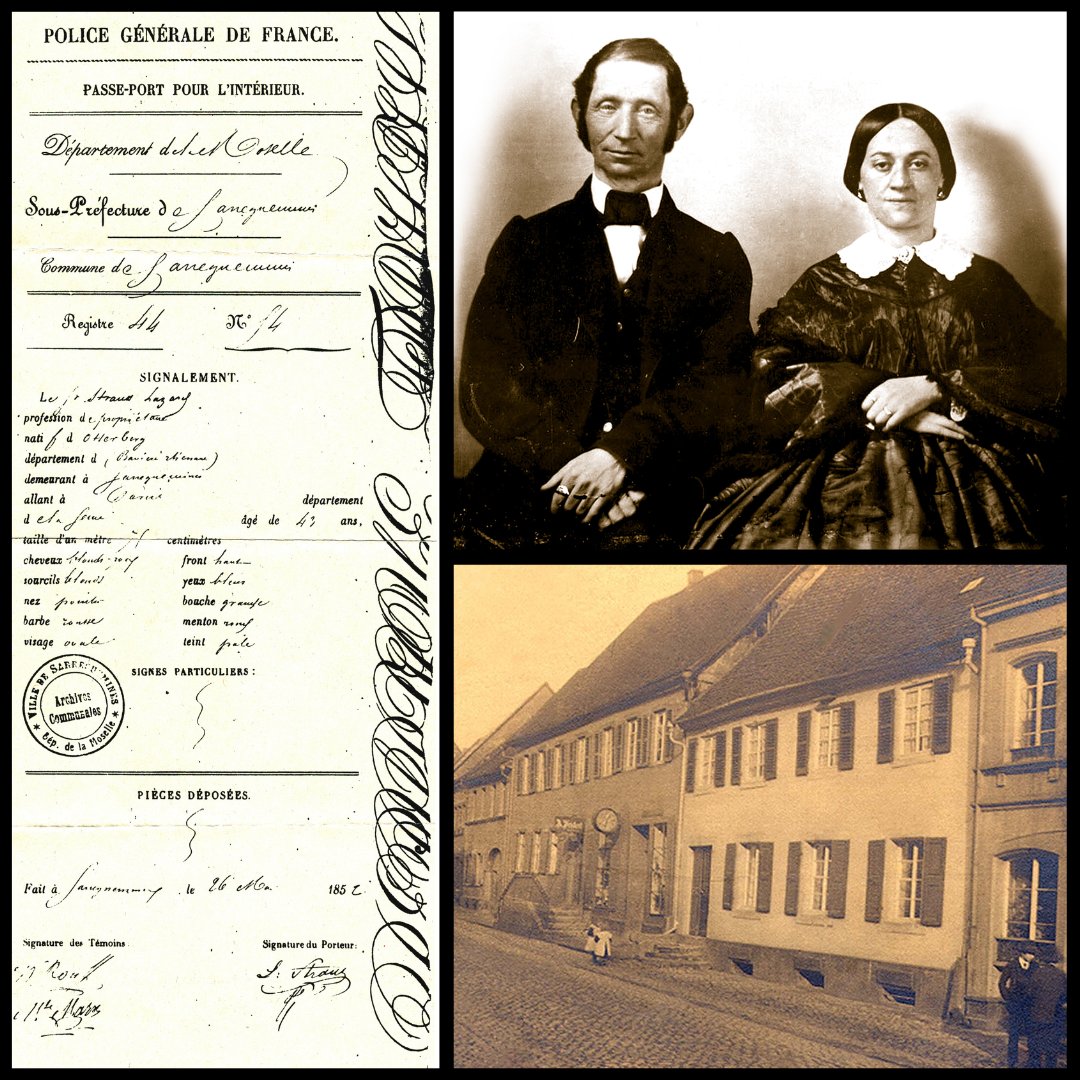 POLICE GÉNÉRALE DE FRANCE.
PASSE-PORT POUR L'INTÉRIEUR.
Département de la Moselle
Sous-Préfecture de Sarreguemines
Commune de Sarreguemines
Registre 44 N° 54
SIGNALEMENT.
Le Sr Strauss Lazard
profession de propriétaire
natif d Otterberg
département d (Bavière rhénane)
demeurant à Sarreguemines
allant à Paris département
d e la Seine âgé de 43 ans,
taille d'un mètre 75 centimètres
cheveux blonds-roux front haut
sourcils blonds yeux bleus
nez pointu bouche grande
barbe rousse menton rond
visage ovale teint pâle
SIGNES PARTICULIERS :
VILLE DE SARREGUEMINES
Archives
Communales
Dép. de la Moselle
PIÈCES DÉPOSÉES.
Fait à Sarreguemines le 26 Mai 1852
Signature des Témoins: Signature du Porteur:
L. Strauss
Marx